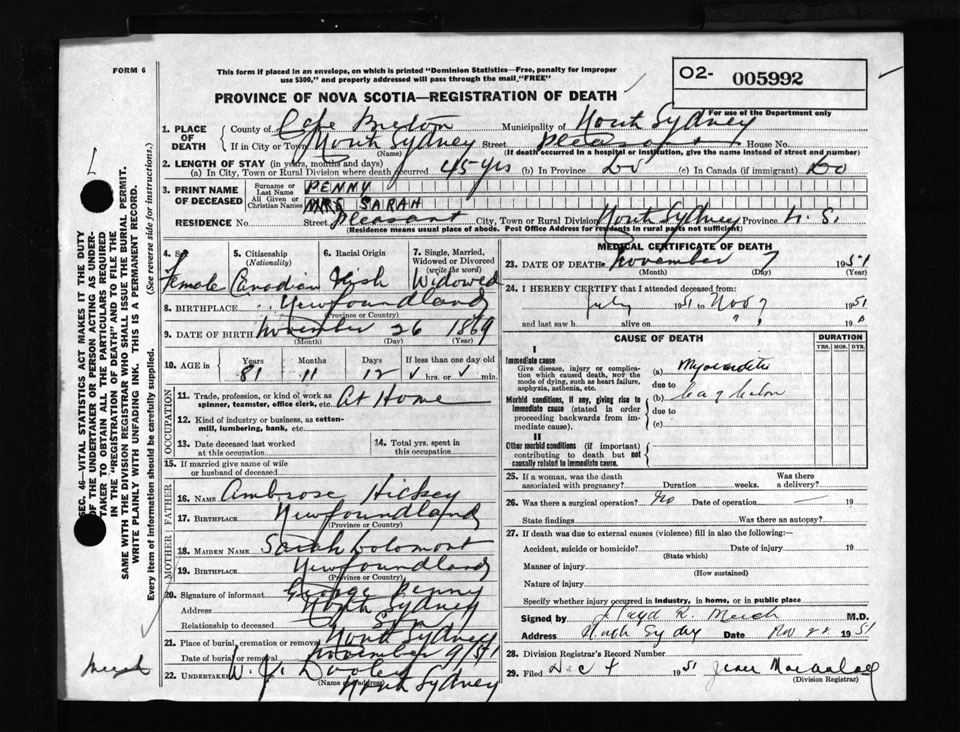 FORM 6
This form if placed in an envelope, on which is printed "Dominion Statistics—Free, penalty for improper
use $300," and properly addressed will pass through the mail "FREE"
O2- 005992
For use of the Department only
PROVINCE OF NOVA SCOTIA—REGISTRATION OF DEATH
1. PLACE OF DEATH County of Cape Breton Municipality of North Sydney
If in City or Town North Sydney Street Pleasant House No.
(Name) (If death occurred in a hospital or institution, give the name instead of street and number)
2. LENGTH OF STAY (in years, months and days)
(a) In City, Town or Rural Division where death occurred 45 yrs (b) In Province Do (c) In Canada (if immigrant) Do
3. PRINT NAME OF DECEASED Surname or Last Name PENNY
All Given or Christian Names MRS SARAH
RESIDENCE No. Street Pleasant City, Town or Rural Division North Sydney Province N. S.
(Residence means usual place of abode. Post Office Address for residents in rural parts not sufficient)
4. Sex Female
5. Citizenship (Nationality) Canadian
6. Racial Origin Irish
7. Single, Married, Widowed or Divorced (write the word) Widowed
8. BIRTHPLACE Newfoundland
(Province or Country)
9. DATE OF BIRTH November 26 1869
(Month) (Day) (Year)
10. AGE in Years Months Days If less than one day old
81 11 12 hrs. or min.
OCCUPATION
11. Trade, profession, or kind of work as
spinner, teamster, office clerk, etc. At Home
12. Kind of industry or business, as cotton-
mill, lumbering, bank, etc.
13. Date deceased last worked
at this occupation
14. Total yrs. spent in
this occupation
15. If married give name of wife
or husband of deceased
FATHER
16. NAME Ambrose Hickey
17. BIRTHPLACE Newfoundland
(Province or Country)
MOTHER
18. MAIDEN NAME Sarah
19. BIRTHPLACE Newfoundland
(Province or Country)
20. Signature of informant George Penny
Address North Sydney
Relationship to deceased Son
21. Place of burial, cremation or removal North Sydney
Date of burial or removal November 9/51
22. UNDERTAKER W. J. Dooley
(Name and Address) North Sydney
MEDICAL CERTIFICATE OF DEATH
23. DATE OF DEATH November 7 1951
(Month) (Day) (Year)
24. I HEREBY CERTIFY that I attended deceased from:
July 1951 to Nov 7 1951
and last saw h alive on 19
CAUSE OF DEATH DURATION
YRS. MOS. DYS.
I
Immediate cause
Give disease, injury or complica-
tion which caused death, NOT the
mode of dying, such as heart failure,
asphyxia, asthenia, etc.
(a) Myocarditis
due to
Morbid conditions, if any, giving rise to
immediate cause (stated in order
proceeding backwards from im-
mediate cause).
(b) Ca of
due to
(c)
II
Other morbid conditions (if important)
contributing to death but not
causally related to immediate cause.
25. If a woman, was the death
associated with pregnancy? Duration weeks. Was there
a delivery?
26. Was there a surgical operation? No Date of operation 19
State findings Was there an autopsy?
27. If death was due to external causes (violence) fill in also the following:—
Accident, suicide or homicide? Date of injury 19
(State which)
Manner of injury
(How sustained)
Nature of injury
Specify whether injury occurred in industry, in home, or in public place
Signed by M.D.
Address North Sydney Date Nov 22 1951
28. Division Registrar's Record Number
29. Filed Dec 4 1951
(Division Registrar)
SEC. 46—VITAL STATISTICS ACT MAKES IT THE DUTY
OF THE UNDERTAKER OR PERSON ACTING AS UNDER-
TAKER TO OBTAIN ALL THE PARTICULARS REQUIRED
IN THE "REGISTRATION OF DEATH" AND TO FILE THE
SAME WITH THE DIVISION REGISTRAR WHO SHALL ISSUE THE BURIAL PERMIT.
WRITE PLAINLY WITH UNFADING INK. THIS IS A PERMANENT RECORD.
Every item of information should be carefully supplied. (See reverse side for instructions.)